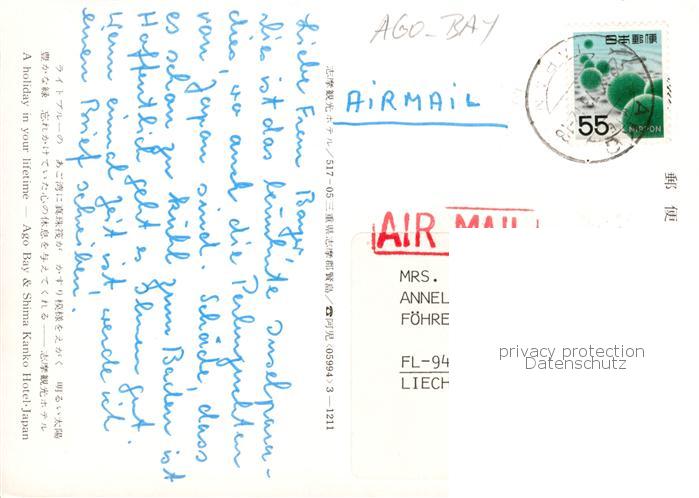 ライトブルーの あご湾に真珠筏が かすり模様をえがく 明るい太陽
豊かな緑 忘れかけていた心の休息を与えてくれる──志摩観光ホテル
A holiday in your lifetime — Ago Bay & Shima Kanko Hotel·Japan
Liebe Frau
dies ist das berühmte Inselpara-
dies, wo auch die Perlzuchten
von Japan sind. Schade, dass
es schon zu kühl zum Baden ist
Hoffentlich geht es Ihnen gut
Wenn einmal Zeit ist werde ich
einen Brief schreiben.
志摩観光ホテル/517-05三重県志摩郡賢島/☎阿児<05994>3-1211
AGO-BAY
AIRMAIL
日本郵便
55
NIPPON
郵便
AIR MAIL
MRS.
ANNEL
FÖHRE
FL-94
LIECH
privacy protection
Datenschutz